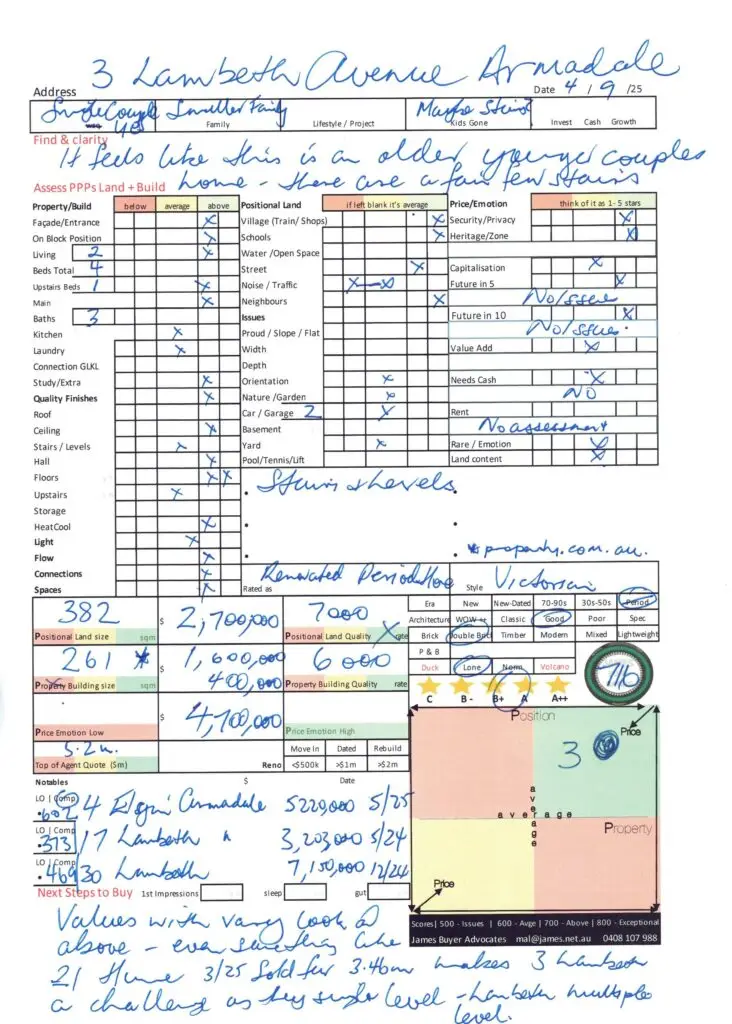 3 Lambeth Avenue Armadale
Address Date 4 / 9 /25
Single Couple Smaller Family Maybe Stairs
yes Family Lifestyle / Project Kids Gone Invest Cash Growth
Find & clarity
It feels like this is an older younger couples
Assess PPPs Land + Build home - there are a fair few stairs
Property/Build below average above Positional Land if left blank it's average Price/Emotion think of it as 1- 5 stars
Façade/Entrance X Village (Train/ Shops) X Security/Privacy X
On Block Position X Schools X Heritage/Zone X
Living 2 X Water /Open Space
Beds Total 4 Street X Capitalisation X
Upstairs Beds 1 X Noise / Traffic X—X Future in 5 X
Main X Neighbours X No issue
Baths 3 Issues Future in 10 X
Kitchen X Proud / Slope / Flat No issues.
Laundry X Width Value Add X
Connection GLKL Depth
Study/Extra X Orientation X Needs Cash X
Quality Finishes X Nature /Garden X NO
Roof Car / Garage 2 X Rent
Ceiling X Basement No assessment
Stairs / Levels X Yard X Rare / Emotion X
Hall X Pool/Tennis/Lift Land content X
Floors X X
Upstairs X • Stairs & Levels.
Storage
HeatCool X
Light X
Flow X * property.com.au.
Connections X
Spaces X Rated as Renovated Period Home Style Victorian
382 $ 2,700,000 7000 Era New New-Dated 70-90s 30s-50s Period
Positional Land size sqm Positional Land Quality X rate Architecture WOW ++ Classic Good Poor Spec
261 * $ 1,600,000 6000 Brick Double Brick Timber Modern Mixed Lightweight
400,000 P & B
Property Building size sqm Property Building Quality rate Duck Lone Norm Volcano
716
$ 4,700,000 C B - B+ A A++
Price Emotion Low Price Emotion High
5.2m. Move In Dated Rebuild
Top of Agent Quote ($m) Reno <$500k >$1m >$2m
Position
Price
3
average
average
Property
Price
Notables $ Date
LO | Comp .602 4 Elgin Armadale 5220,000 5/25
LO | Comp .373 17 Lambeth " 3,203,000 5/24
LO | Comp .469 30 Lambeth 7,150,000 12/24
Next Steps to Buy 1st Impressions sleep gut
Scores| 500 - Issues | 600 - Avge | 700 - Above | 800 - Exceptional
James Buyer Advocates mal@james.net.au 0408 107 988
Values with vary look @
above - even something like
21 Hume 3/25 Sold for 3.46m makes 3 Lambeth
a challenge as its single level - Lambeth multiple
level.